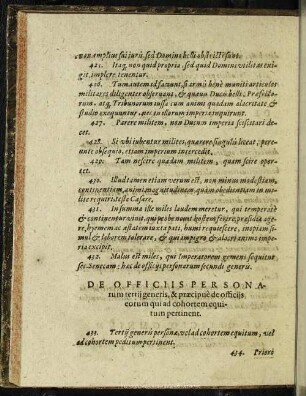 non amplius sui juris, sed Domino belli abstricti sunt.
425. Itaq; non quid propria, sed quid Domini velit
git, implere tenentur.
426. Tum autem id faciunt, si armis bene muniti articulos
militares diligenter observant, & quovis Ducis belli, Præfecto-
rum, atq; Tribunorum jussa cum animi quadam alacritate &
studio exequuntur, nec in illorum imperia inquirunt.
427. Parere militem, non Ducum imperia sciscitari de-
cet.
428. Si ubi jubentur milites, quærere singulis liceat, pere-
unte obsequio, etiam imperium intercidit.
429. Tam nescire quædam militem, quam scire opor-
tet.
430. Illud tamen etiam verum est, non minus modestiam,
continentiam, animi magnitudinem quàm obedientiam in mi-
lite requiri, teste Cæsare.
431. In summa ille miles laudem meretur, qui temperatè
& continenter vivit, qui probe novit hostem ferire, præsidia age-
re, hyemem ac æstatem juxta pati, humi requiescere, inopiam si-
mul & laborem tolerare, & qui impigre & alacri animo imperia
excipit.
432. Malus est miles, qui Imperatorem gemens sequitur
sec. Senecam; hæc de officijs personarum secundi generis.
DE OFFICIIS PERSONA-
rum tertij generis, & præcipuè de officijs
eorum qui ad cohortem equi-
tum pertinent.
433. Tertij generis personæ, vel ad cohortem equitum, vel
ad cohortem peditum pertinent.
434. Priori